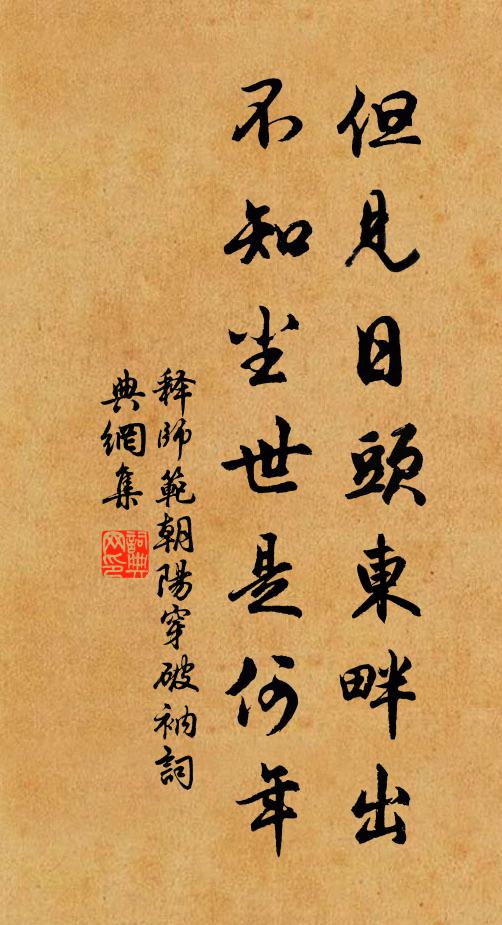 但見日頭東畔出
不知尘世是何年
释師範朝陽穿破衲詞
典網集
詞典网印